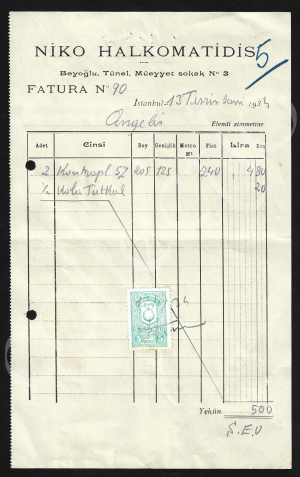 5
NIKO HALKOMATIDIS
Beyoğlu, Tünel, Müeyyet sokak No 3
FATURA No 90
Istanbul 13 Teşrin 1934
Angelis
Efendi zimmetine
Adet Cinsi Boy Genişlik Metro M² Fiat Lira Krş
2 Kontrapl 205 125 240 4 80
½ Kilo Tutkal 20
34
Yekûn 500
S.E.O